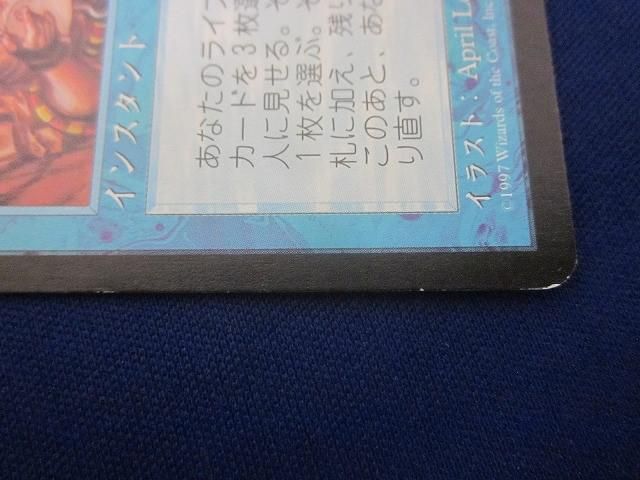 インスタント
あなたのライブ
カードを3枚選
人に見せる。そ
1枚を選ぶ。そ
札に加え、残り
このあと、あな
り直す。
イラスト：April L
©1997 Wizards of the Coast, Inc.